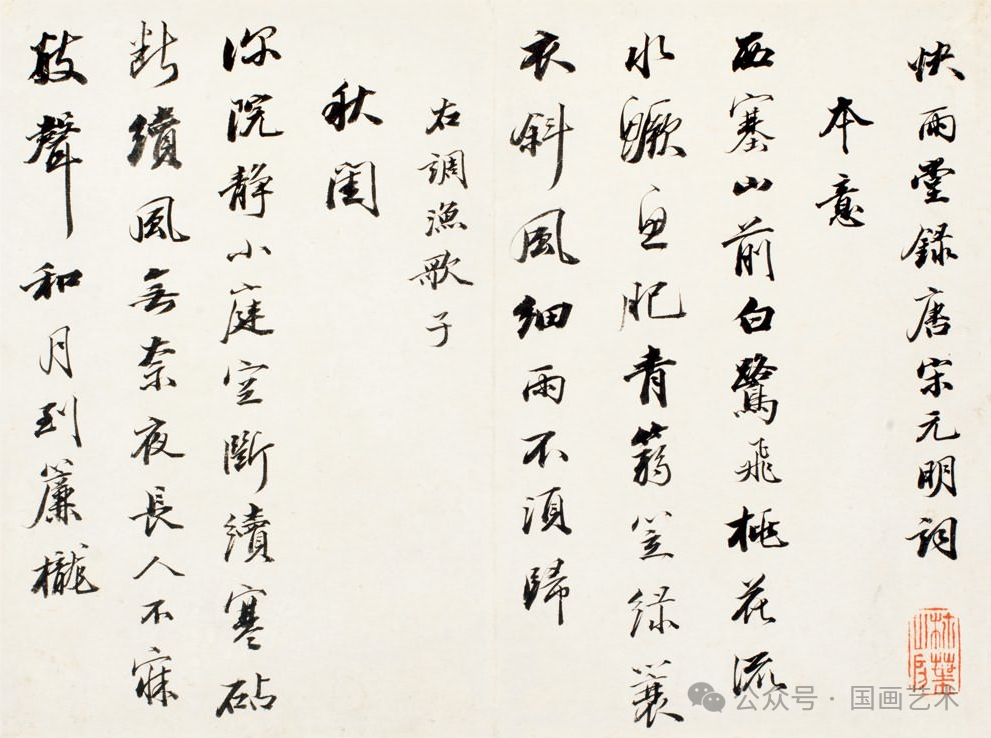 快雨堂錄唐宋元明詞
本意
西塞山前白鷺飛桃花流
水鱖魚肥青篛笠綠簑
衣斜風細雨不須歸
右調漁歌子
秋閨
深院靜小庭空斷續寒砧
斷續風無奈夜長人不寐
數聲和月到簾櫳
公众号 · 国画艺术